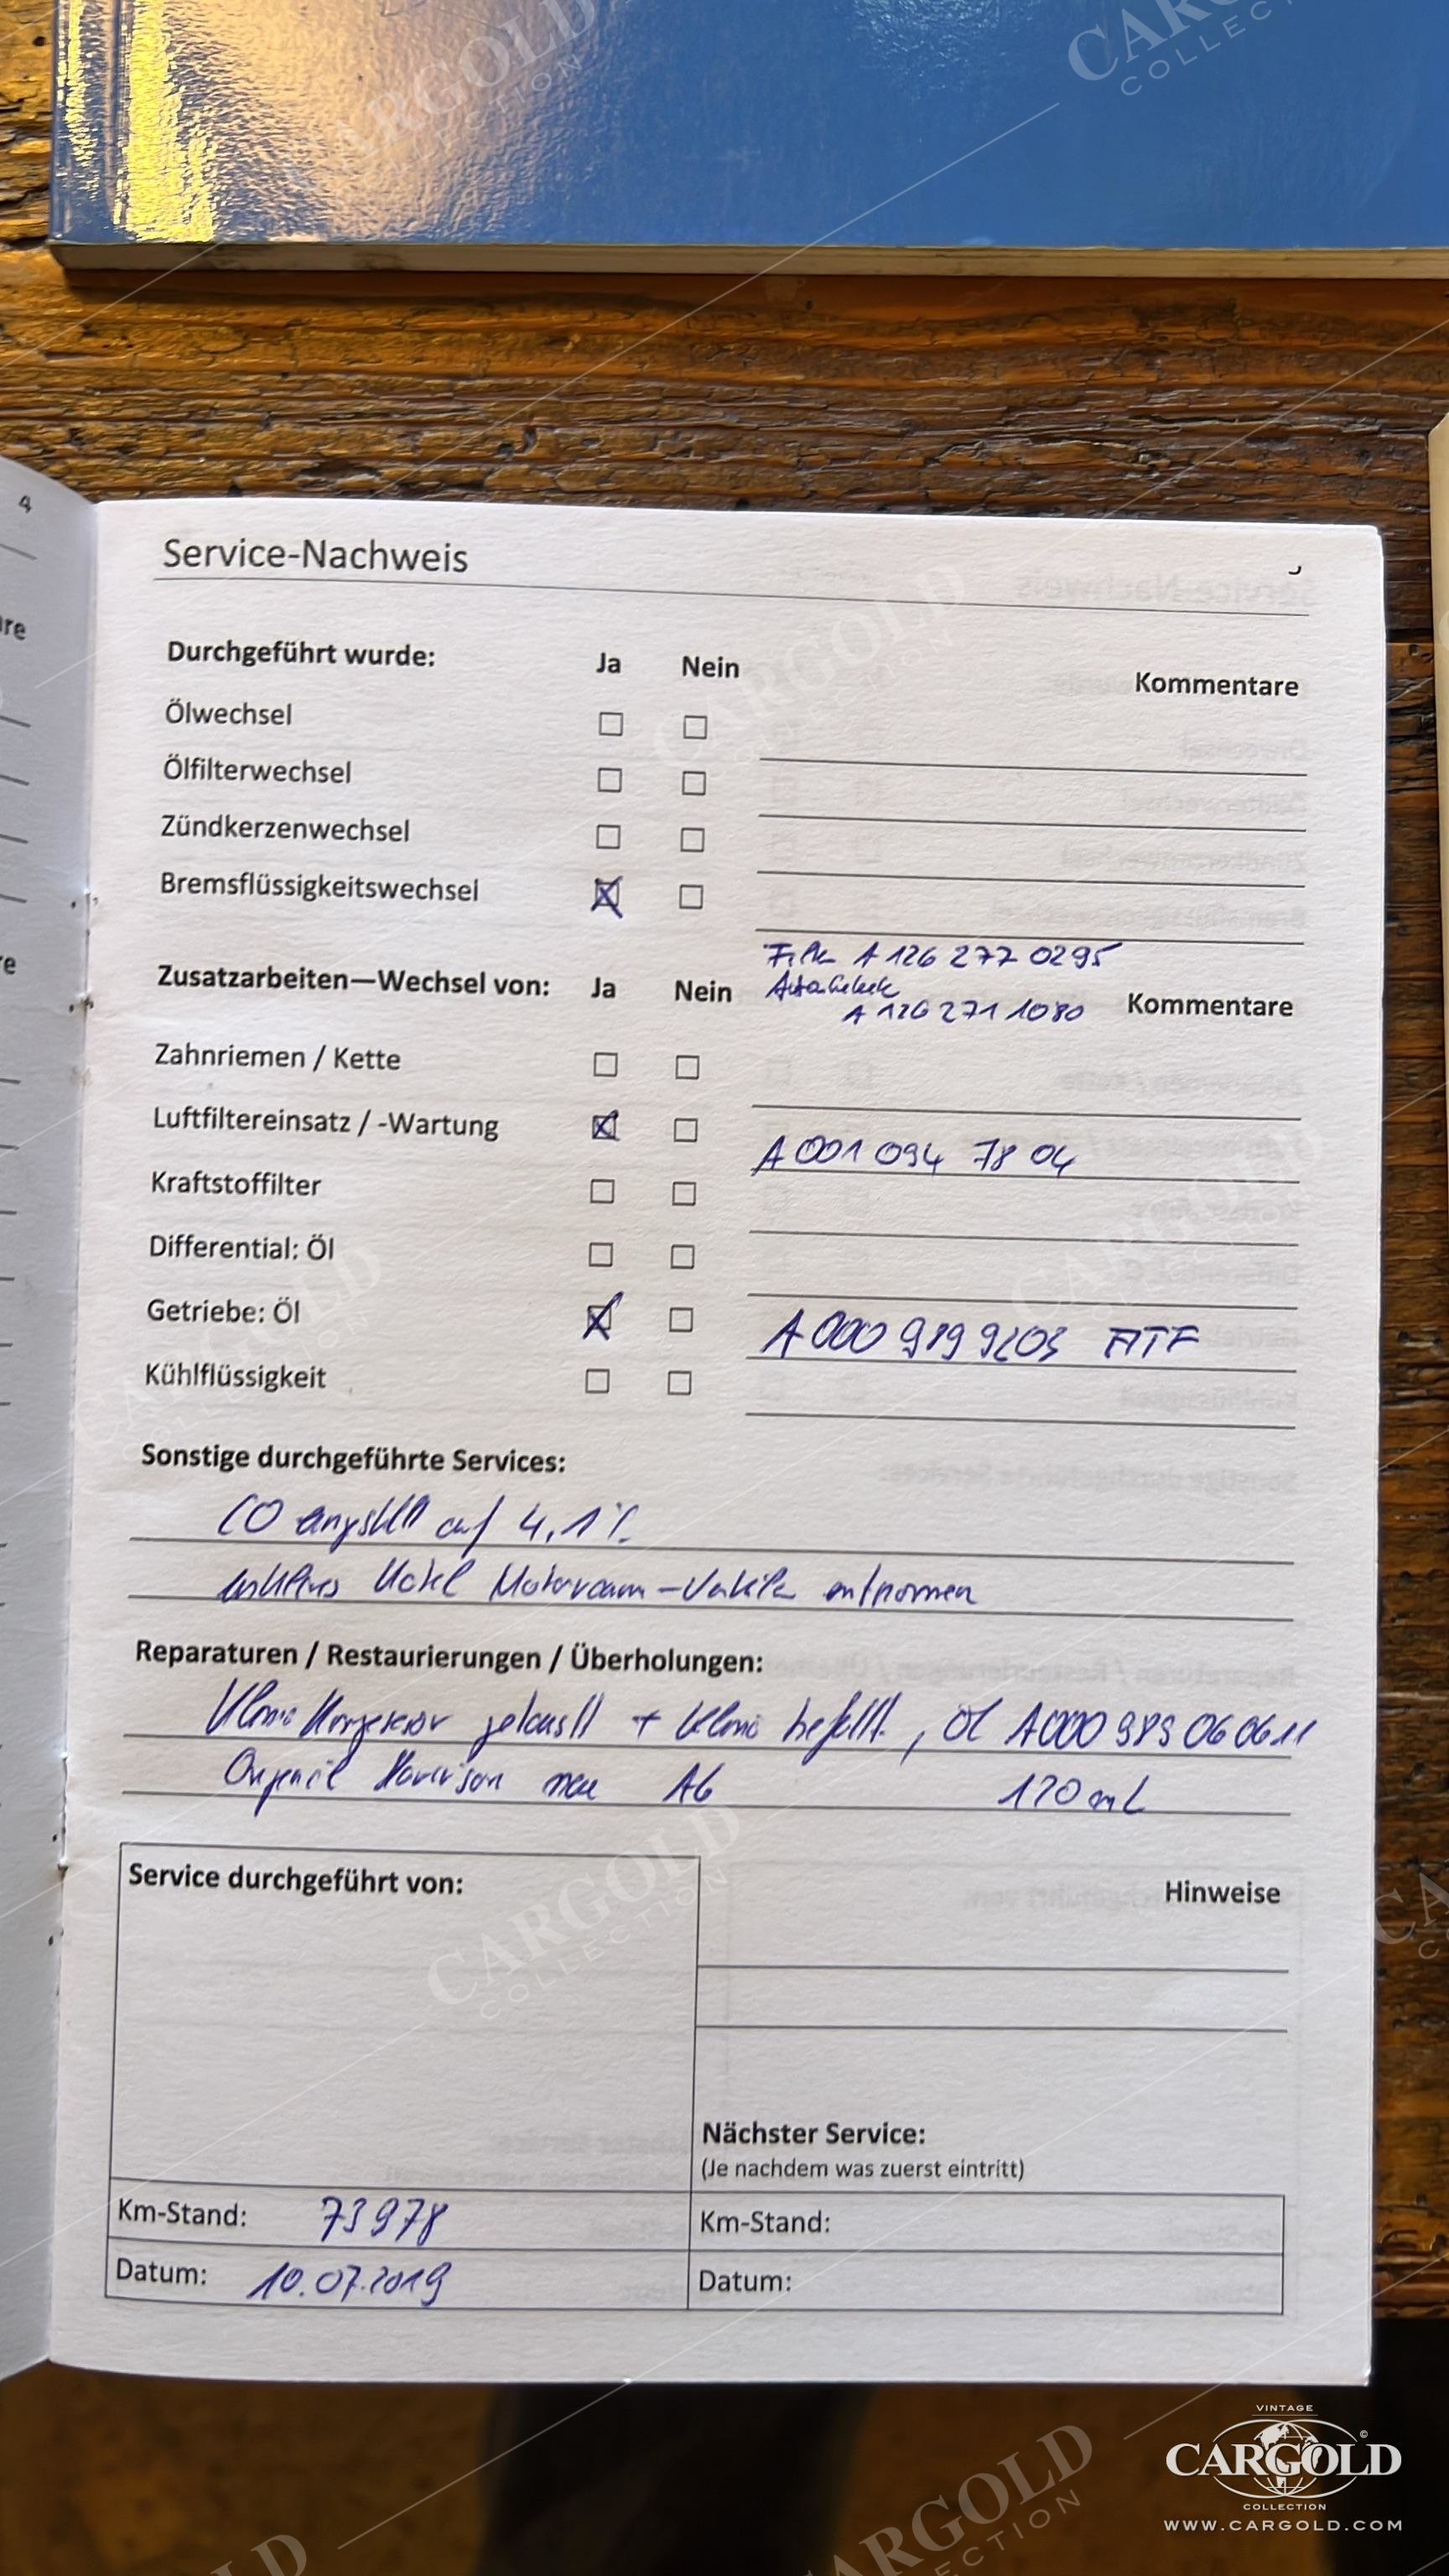 4
Service-Nachweis
Durchgeführt wurde: Ja Nein Kommentare
Ölwechsel
Ölfilterwechsel
Zündkerzenwechsel
Bremsflüssigkeitswechsel
A 126 277 0295
Zusatzarbeiten—Wechsel von: Ja Nein Kommentare
A 126 271 1080
Zahnriemen / Kette
Luftfiltereinsatz / -Wartung
A 001 094 78 04
Kraftstoffilter
Differential: Öl
Getriebe: Öl
A 000 989 9203 ATF
Kühlflüssigkeit
Sonstige durchgeführte Services:
CO auf 4,1%
Motorraum – entnommen
Reparaturen / Restaurierungen / Überholungen:
+ Klima befüllt, Öl A000 989 060611
Harrison neu 120 ml
Service durchgeführt von:
Hinweise
Nächster Service:
(Je nachdem was zuerst eintritt)
Km-Stand: 73978 Km-Stand:
Datum: 10.07.2019 Datum:
VINTAGE
CARGOLD
COLLECTION
WWW.CARGOLD.COM